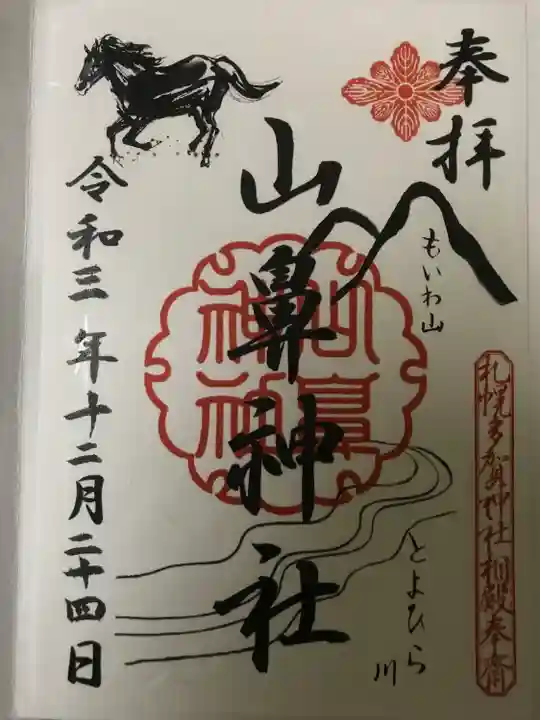 奉拝
もいわ山
札幌まがゐ神社相殿奉斎
山鼻神社
山鼻神社
とよひら川
令和三年十二月二十四日